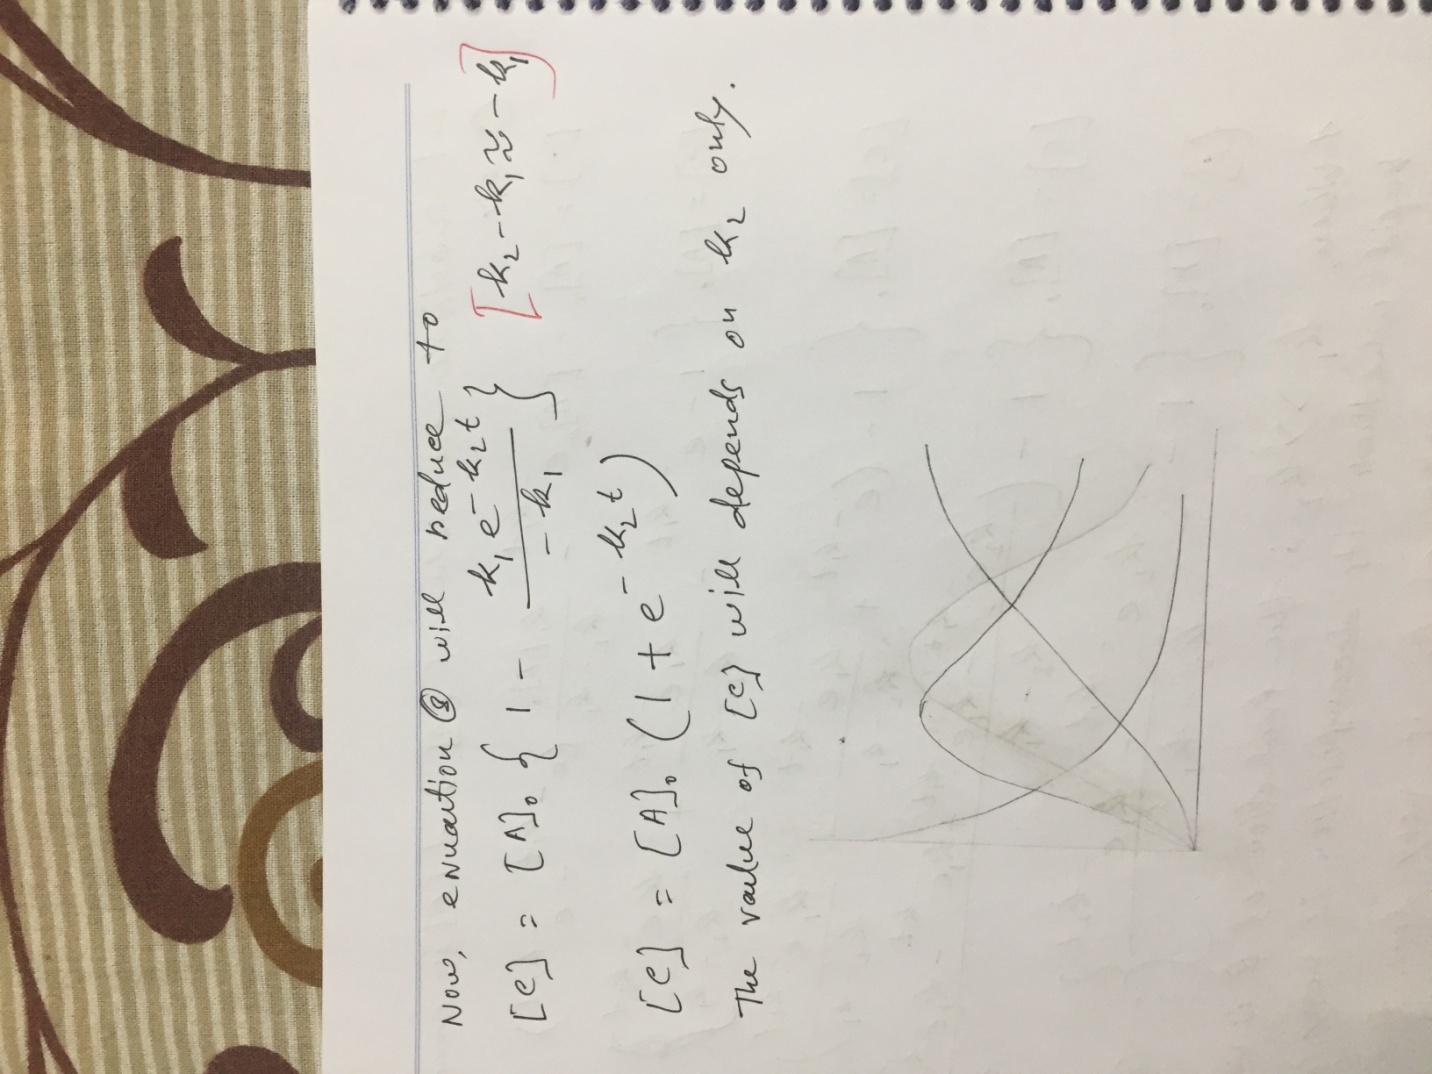 Now, equation ⑧ will reduce to
[C] = [A]₀ { 1 - k₁e^-k₂t / -k₁ } [k₂-k₁ ≈ -k₁]
[C] = [A]₀ (1 + e^-k₂t)
The value of [C] will depends on k₂ only.